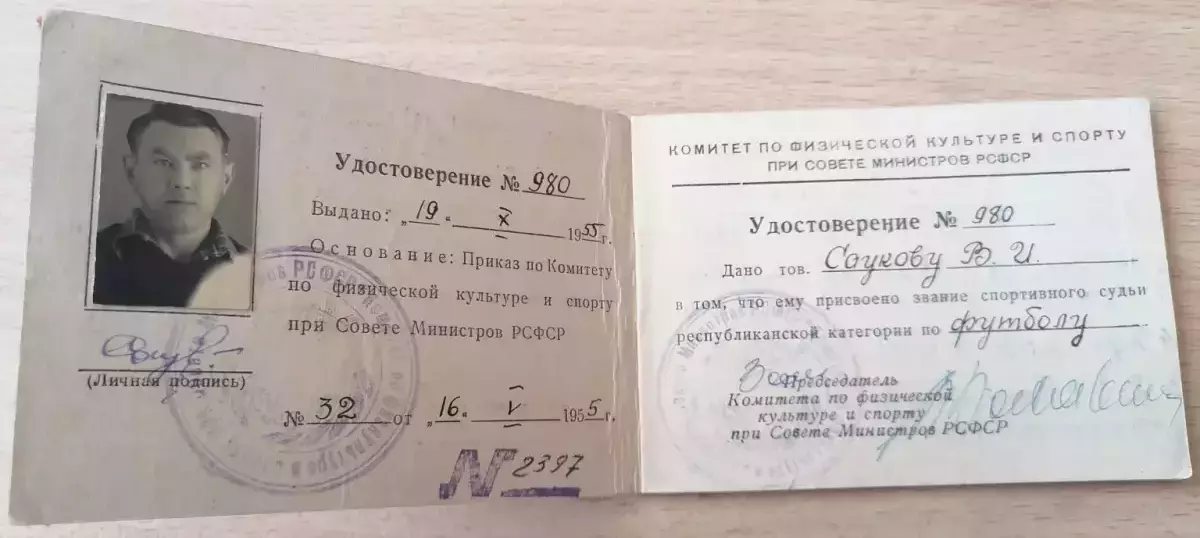 Удостоверение № 980
Выдано: „19“ X 1955г.
Основание: Приказ по Комитету
по физической культуре и спорту
при Совете Министров РСФСР
(Личная подпись)
№ 32 от „16“ V 1955г.
№ 2397
КОМИТЕТ ПО ФИЗИЧЕСКОЙ КУЛЬТУРЕ И СПОРТУ
ПРИ СОВЕТЕ МИНИСТРОВ РСФСР
Удостоверение № 980
Дано тов. Саукову В. И.
в том, что ему присвоено звание спортивного судьи
республиканской категории по футболу
Председатель
Комитета по физической
культуре и спорту
при Совете Министров РСФСР